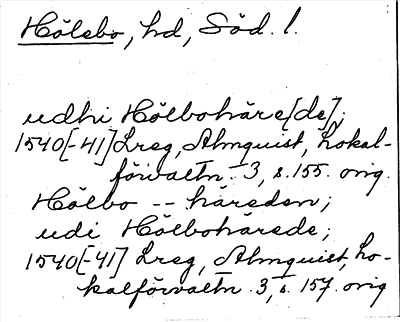 Hölebo, hd, Söd. l.
udhi Hölbohäre[de];
1540[-41] Lreg, Almquist, Lokal-
förvaltn. 3, s. 155. orig.
Hölbo -- häreden;
udi Hölbohärede;
1540[-41] Lreg, Almquist, Lo-
kalförvaltn. 3, s. 157. orig